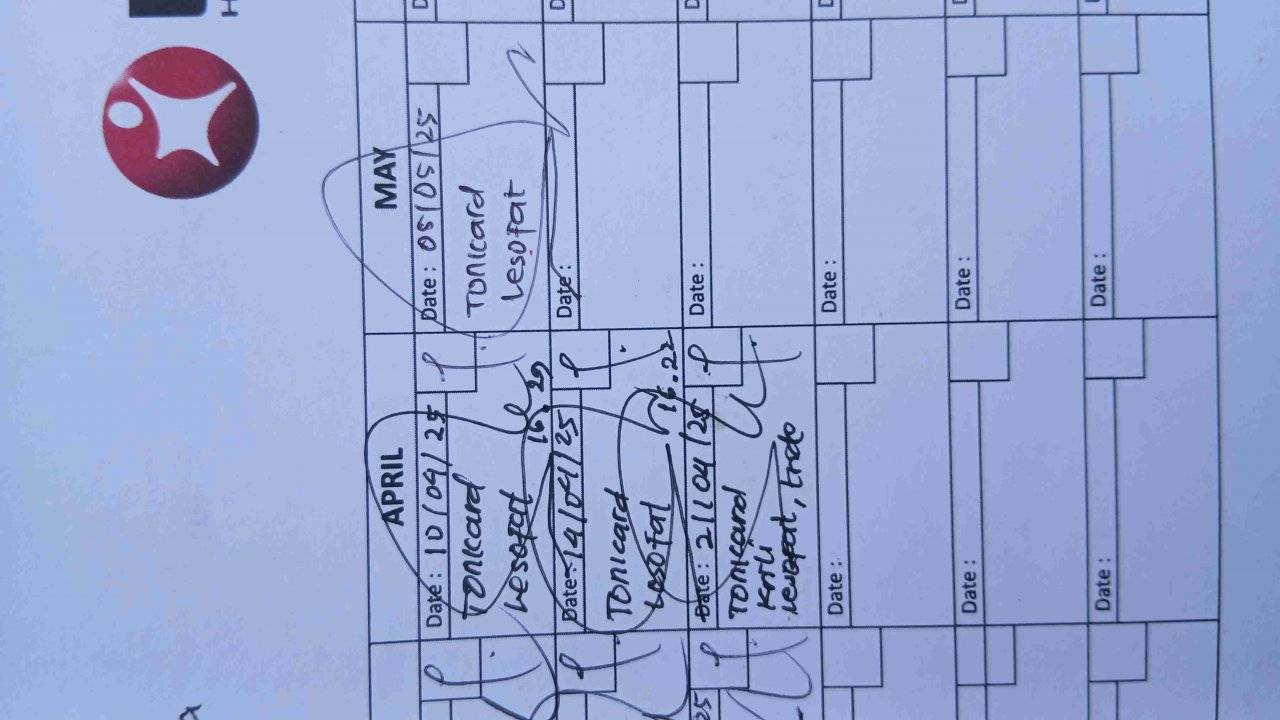 APRIL
Date : 10/04/25
Tonicard
Lesofat
16.29
Date : 14/04/25
Tonicard
Lesofat
16.22
Date : 21/04/25
Tonicard
Date :
Date :
Date :
MAY
Date : 05/05/25
Tonicard
Lesofat
Date :
Date :
Date :
Date :
Date :
25
H
D
D
D
D
D
D